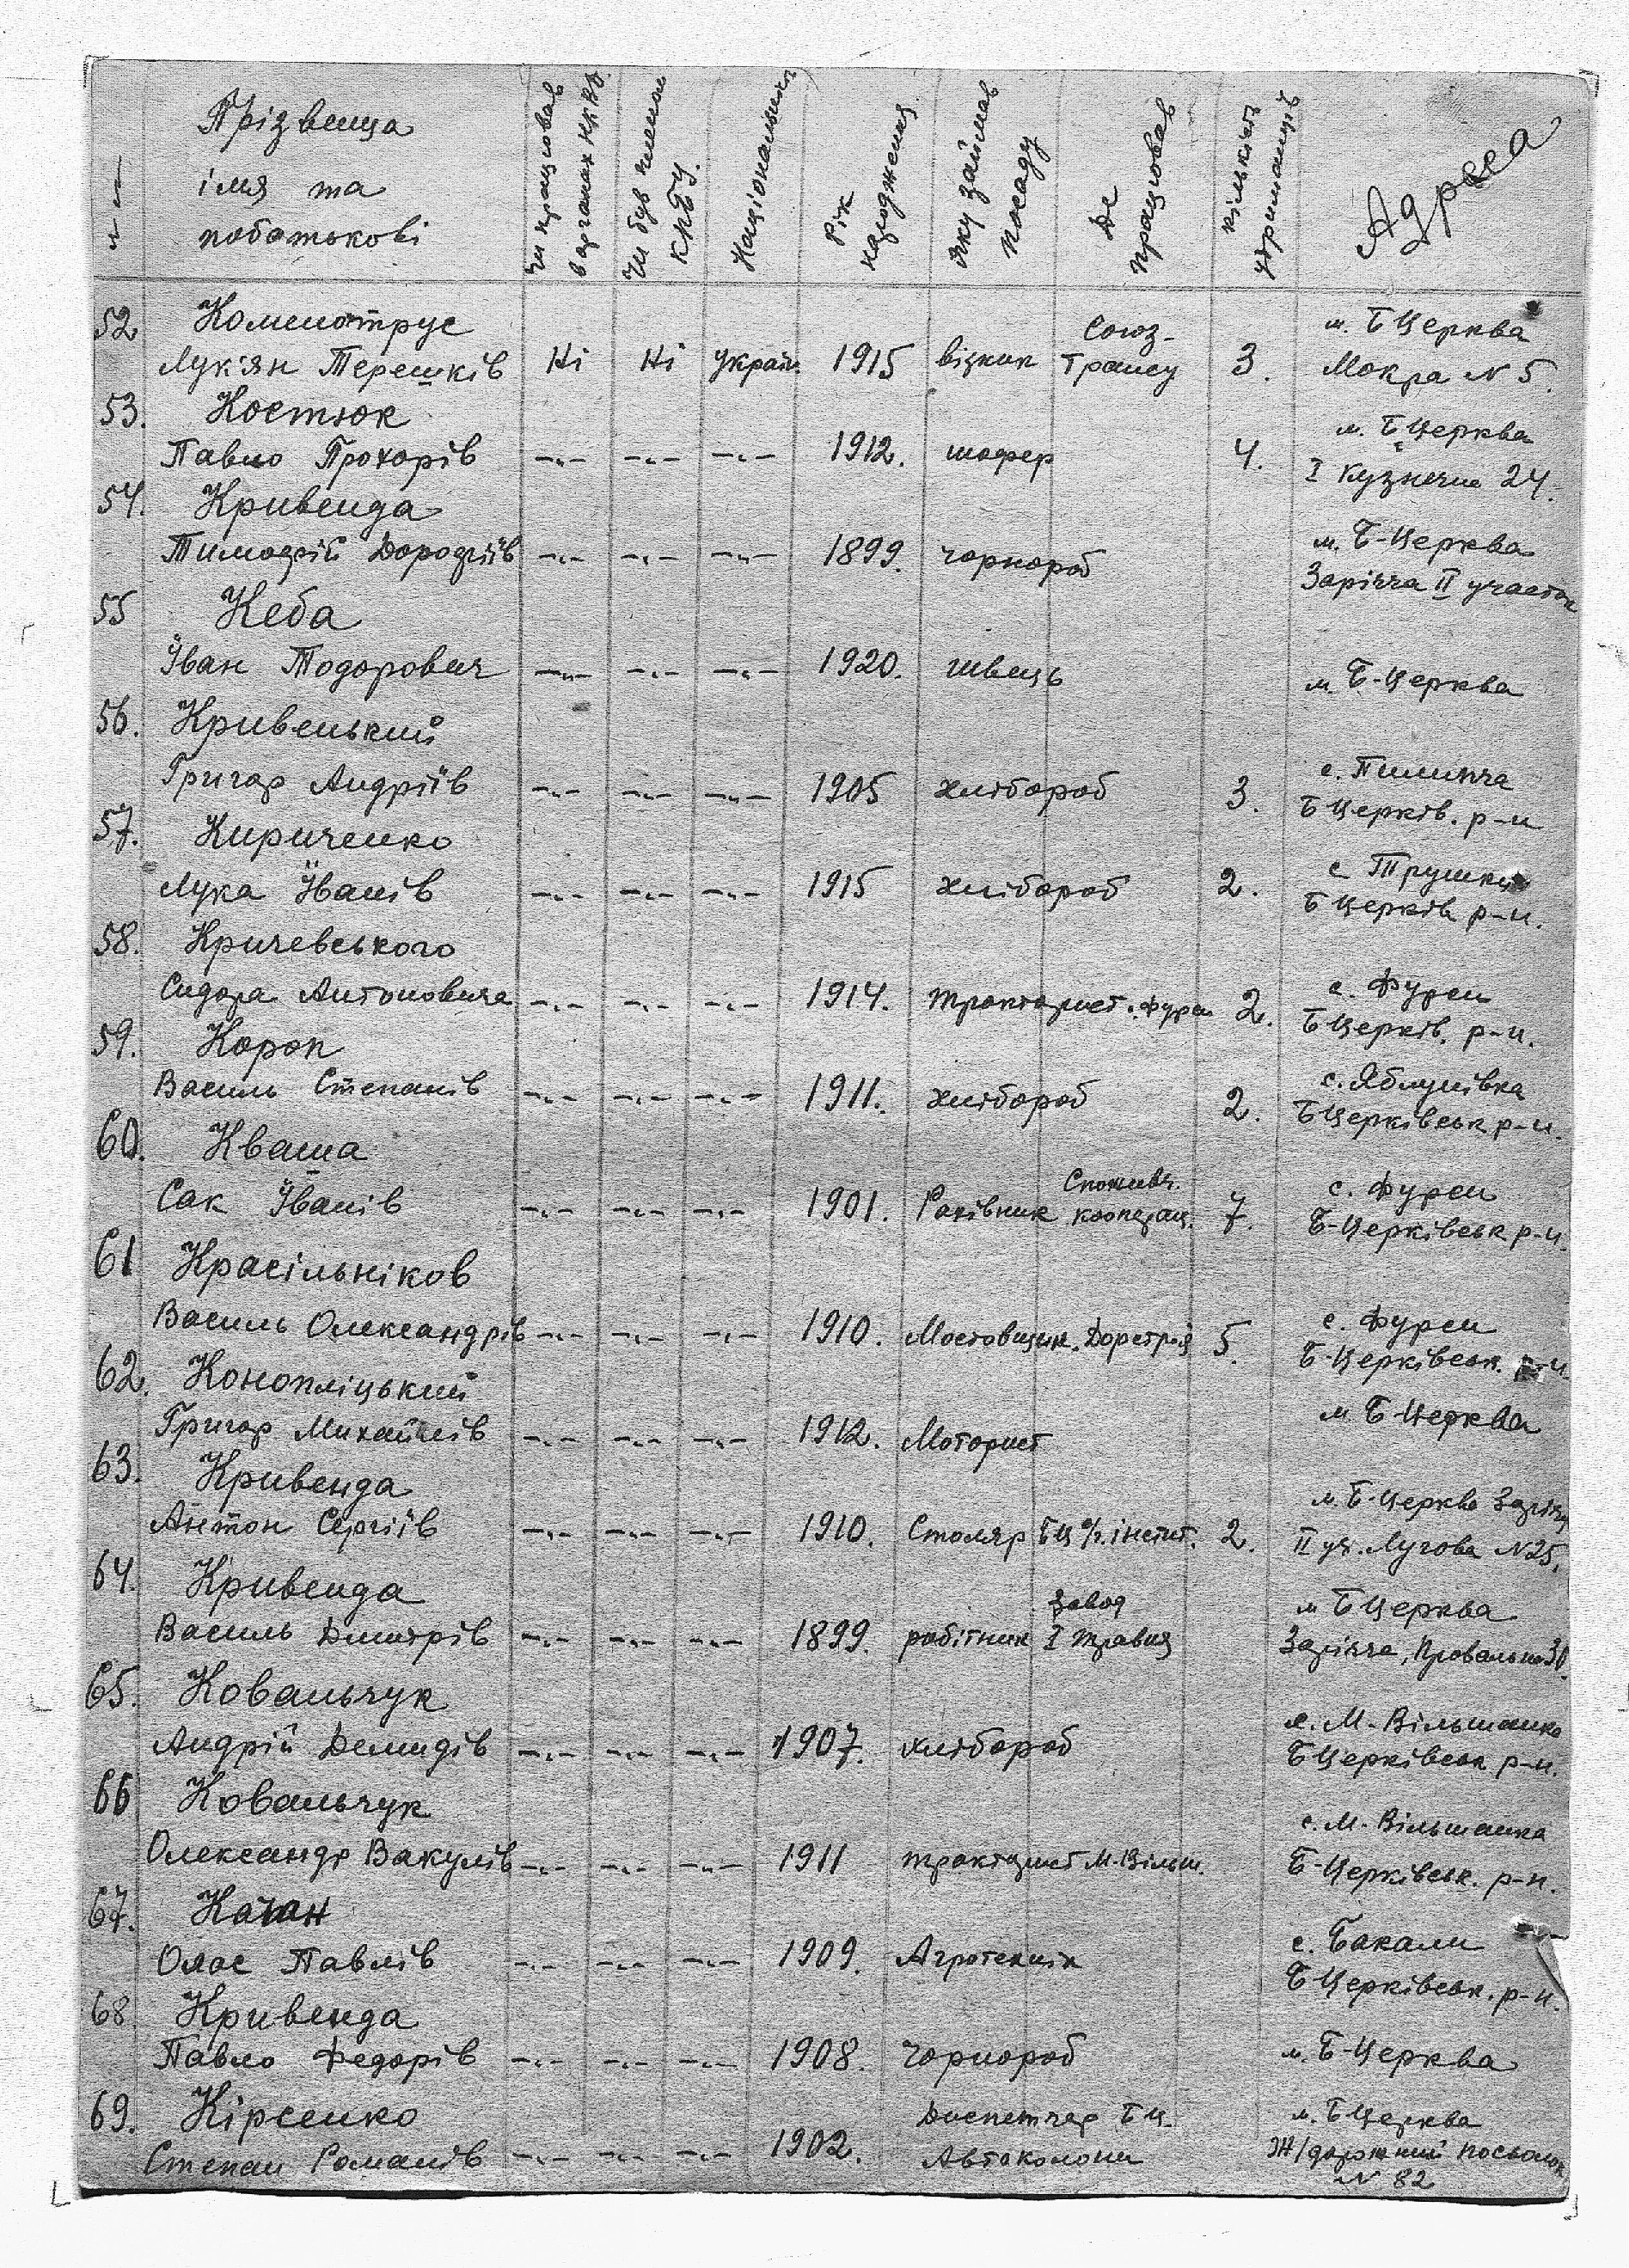 Прізвеща
імя та
побатькові
Чи працював
в органах НКВД.
Чи був членом
КПБУ.
Національність
Рік
народження
Яку займав
посаду
Де
працював
кількість
утриманців
Адресса
52 Коменотрус Союз- м. БЦерква
Лук'ян Терешків Ні Ні україн. 1915 візник Трансу 3. Мокра № 5.
53. Костюк м. БЦерква
Павло Прохорів —„— —„— —„— 1912. шофер 4. І Кузнечна 24.
54. Кривенда м. Б-Церква
Тимофій Дорофіїв —„— —„— —„— 1899. чорнороб Зарічча ІІ участок
55 Кеба
Іван Тодорович —„— —„— —„— 1920. швець м. Б-Церква
56. Кривенький с. Пилипча
Григор Андріїв —„— —„— —„— 1905 хлібороб 3. БЦерків. р-н
57. Кириченко с Трушки
Лука Іванів —„— —„— —„— 1915 хлібороб 2. БЦерків р-н.
58. Кричевського с. Фурси
Сидора Антоновича —„— —„— —„— 1914. тракторист. Фурси 2. БЦерків. р-н.
59. Короп с. Яблунівка
Василь Степанів —„— —„— —„— 1911. хлібороб 2. БЦерківськ р-н.
60. Кваша Споживч. с. Фурси
Сак Іванів —„— —„— —„— 1901. Рахівник кооперац. 7. Б-Церківськ р-н.
61 Красільніков с. Фурси
Василь Олександрів —„— —„— —„— 1910. Мостовщик. Дорстрой 5. Б-Церківськ. р-н.
62. Конопліцький м Б-Церква
Григор Михайлів —„— —„— —„— 1912. Моторист
63. Кривенда м. Б-Церква Заріччя
Антон Сергіїв —„— —„— —„— 1910. Столяр БЦ с/г. інстит. 2. ІІ уч. Лугова №25.
64. Кривенда завод м БЦерква
Василь Дмитрів —„— —„— —„— 1899. робітник І травня Зарічча, Провальна 30.
65. Ковальчук с. М-Вільшанка
Андрій Демидів —„— —„— —„— 1907. хлібороб БЦерківськ р-н.
66 Ковальчук с. М-Вільшанка
Олександр Вакулів —„— —„— —„— 1911 тракторист М-Вільш. Б-Церківськ. р-н.
67. Качан с. Бакали
Олас Павлів —„— —„— —„— 1909. Агротехнік БЦерківськ. р-н.
68. Кривенда
Павло Федорів —„— —„— —„— 1908. Чорнороб м. Б-Церква
69. Кірсенко Диспетчер БЦ. м. БЦерква
Степан Романів —„— —„— —„— 1902. Автоколони Ж/дорожний посьолок
№ 82